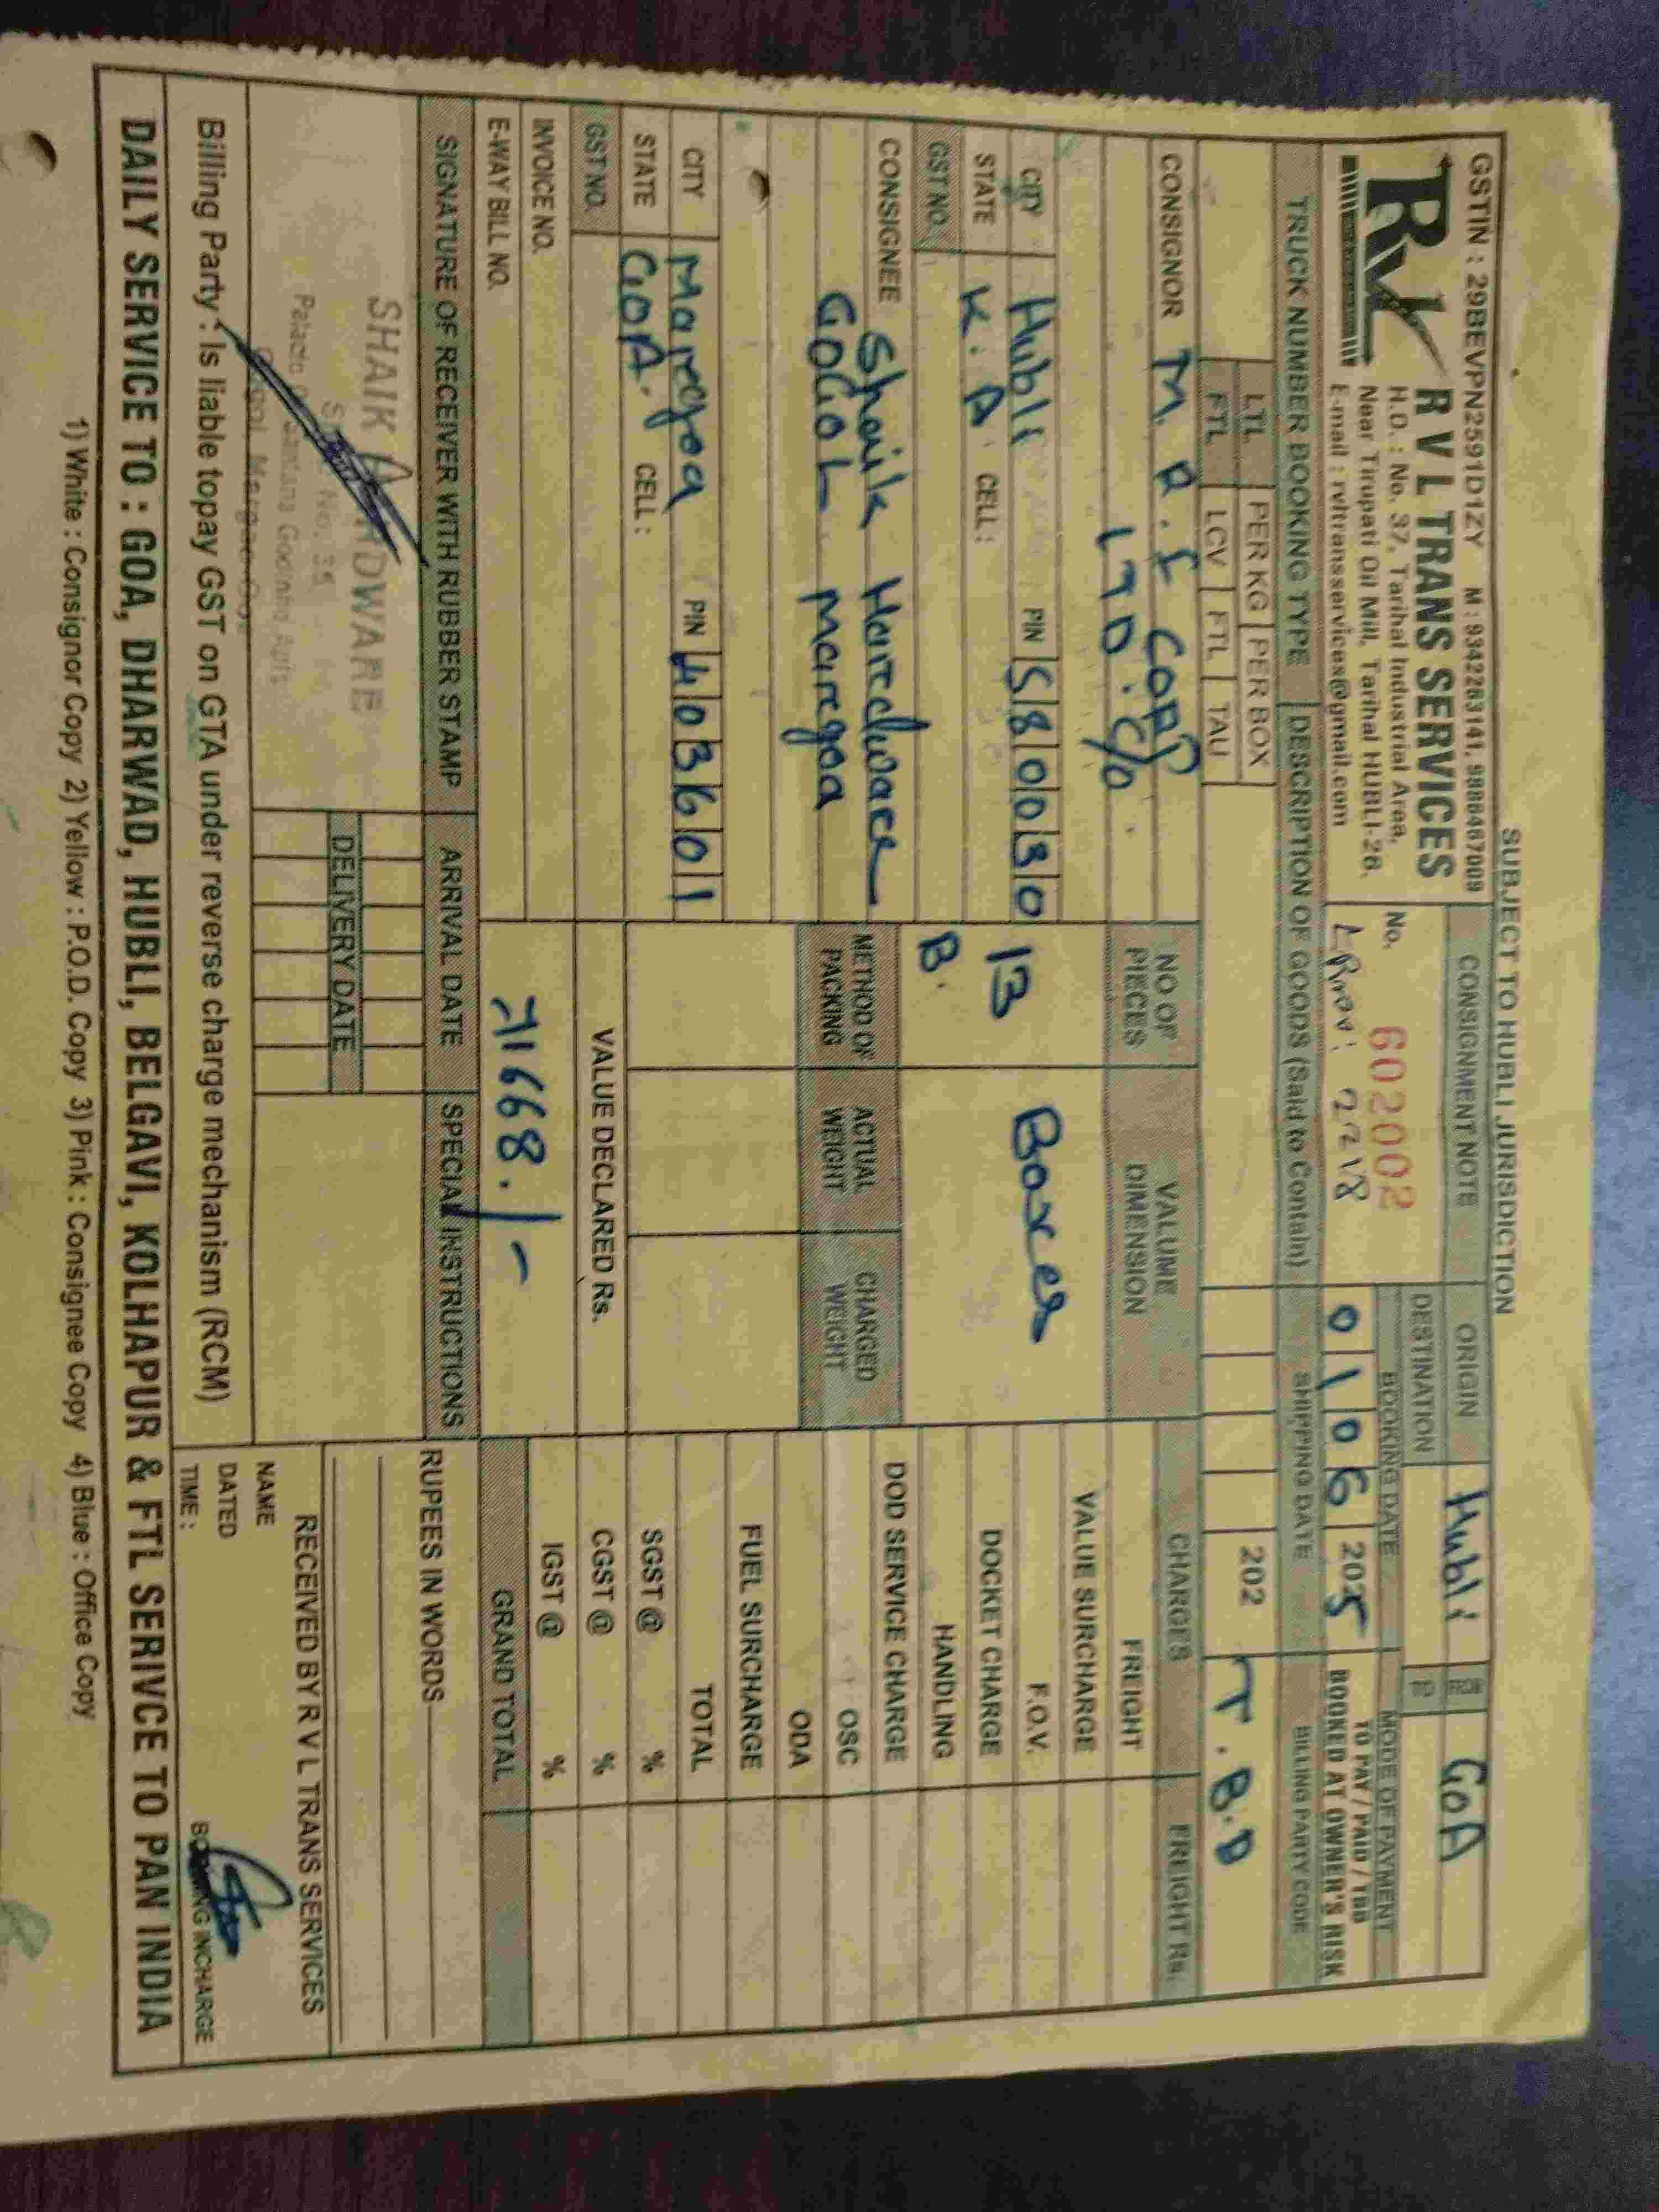 SUBJECT TO HUBLI JURISDICTION
GSTIN : 29BEVPN2591D1ZY M : 9342263141, 9886467009
RVL R V L TRANS SERVICES
H.O. : No. 37, Tarihal Industrial Area,
Near Tirupati Oil Mill, Tarihal HUBLI-26.
E-mail : rvltransservices@gmail.com
CONSIGNMENT NOTE
No. 602002
2218
ORIGIN Hubli FROM GOA
DESTINATION TO
BOOKING DATE MODE OF PAYMENT
01 06 2025 TO PAY / PAID / TBB
BOOKED AT OWNER'S RISK
SHIPPING DATE BILLING PARTY CODE
202 T.B.D
TRUCK NUMBER BOOKING TYPE DESCRIPTION OF GOODS (Said to Contain)
LTL PER KG PER BOX
FTL LCV FTL TAU
CONSIGNOR M.R.F CORP
LTD.
CITY Hubli PIN 580030
STATE K.A CELL :
GST NO.
CONSIGNEE Shaik Hardware
GOGOL Margoa
CITY Margoa PIN 403601
STATE GOA. CELL :
GST NO.
INVOICE NO.
E-WAY BILL NO.
NO OF PIECES VALUME DIMENSION
13 Boxes
B.
METHOD OF PACKING ACTUAL WEIGHT CHARGED WEIGHT
VALUE DECLARED Rs.
71668./-
CHARGES FREIGHT Rs.
FREIGHT
VALUE SURCHARGE
F.O.V.
DOCKET CHARGE
HANDLING
DOD SERVICE CHARGE
OSC
ODA
FUEL SURCHARGE
TOTAL
SGST @ %
CGST @ %
IGST @ %
GRAND TOTAL
SIGNATURE OF RECEIVER WITH RUBBER STAMP ARRIVAL DATE SPECIAL INSTRUCTIONS
SHAIK
No. 35
Godinho Apts.
DELIVERY DATE
RUPEES IN WORDS
RECEIVED BY R V L TRANS SERVICES
NAME
DATED
TIME : BOOKING INCHARGE
Billing Party : Is liable topay GST on GTA under reverse charge mechanism (RCM)
DAILY SERVICE TO : GOA, DHARWAD, HUBLI, BELGAVI, KOLHAPUR & FTL SERIVCE TO PAN INDIA
1) White : Consignor Copy 2) Yellow : P.O.D. Copy 3) Pink : Consignee Copy 4) Blue : Office Copy